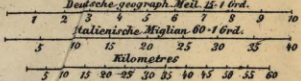 Deutsche geograph. Meil. 15=1 Grd.
1 2 3 4 5 6 7 8 9 10
Italienische Miglian 60=1 Grd.
5 10 15 20 25 30 35 40
Kilometres
5 10 15 20 25 30 35 40 45 50 55 60